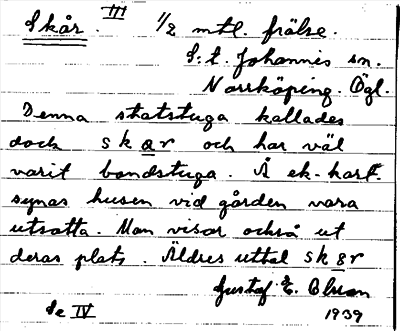 Skår. III 1/2 mtl. frälse.
S:t Johannis sn.
Norrköping. Ögl.
Denna statstuga kallades
dock skar och har väl
varit bondstuga. Å ek-kart.
synas husen vid gården vara
utsatta. Man visar också ut
deras plats. Äldres uttal skar
Gustaf E. Olsson
Se IV 1939